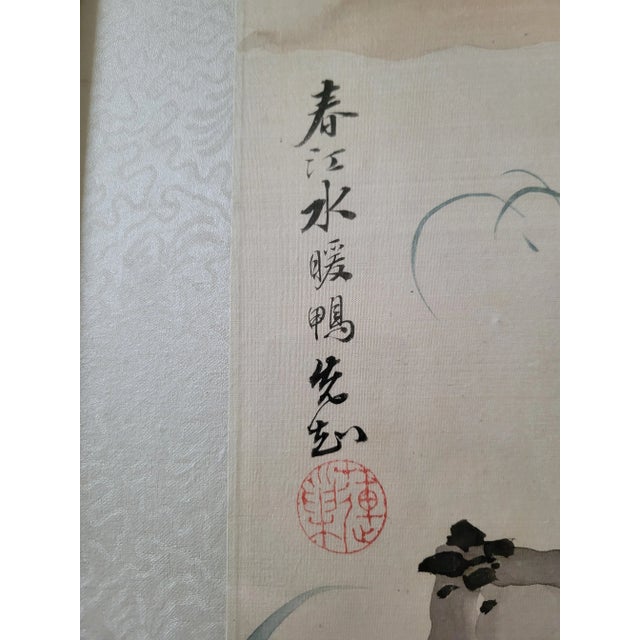 春江水暖鴨先知